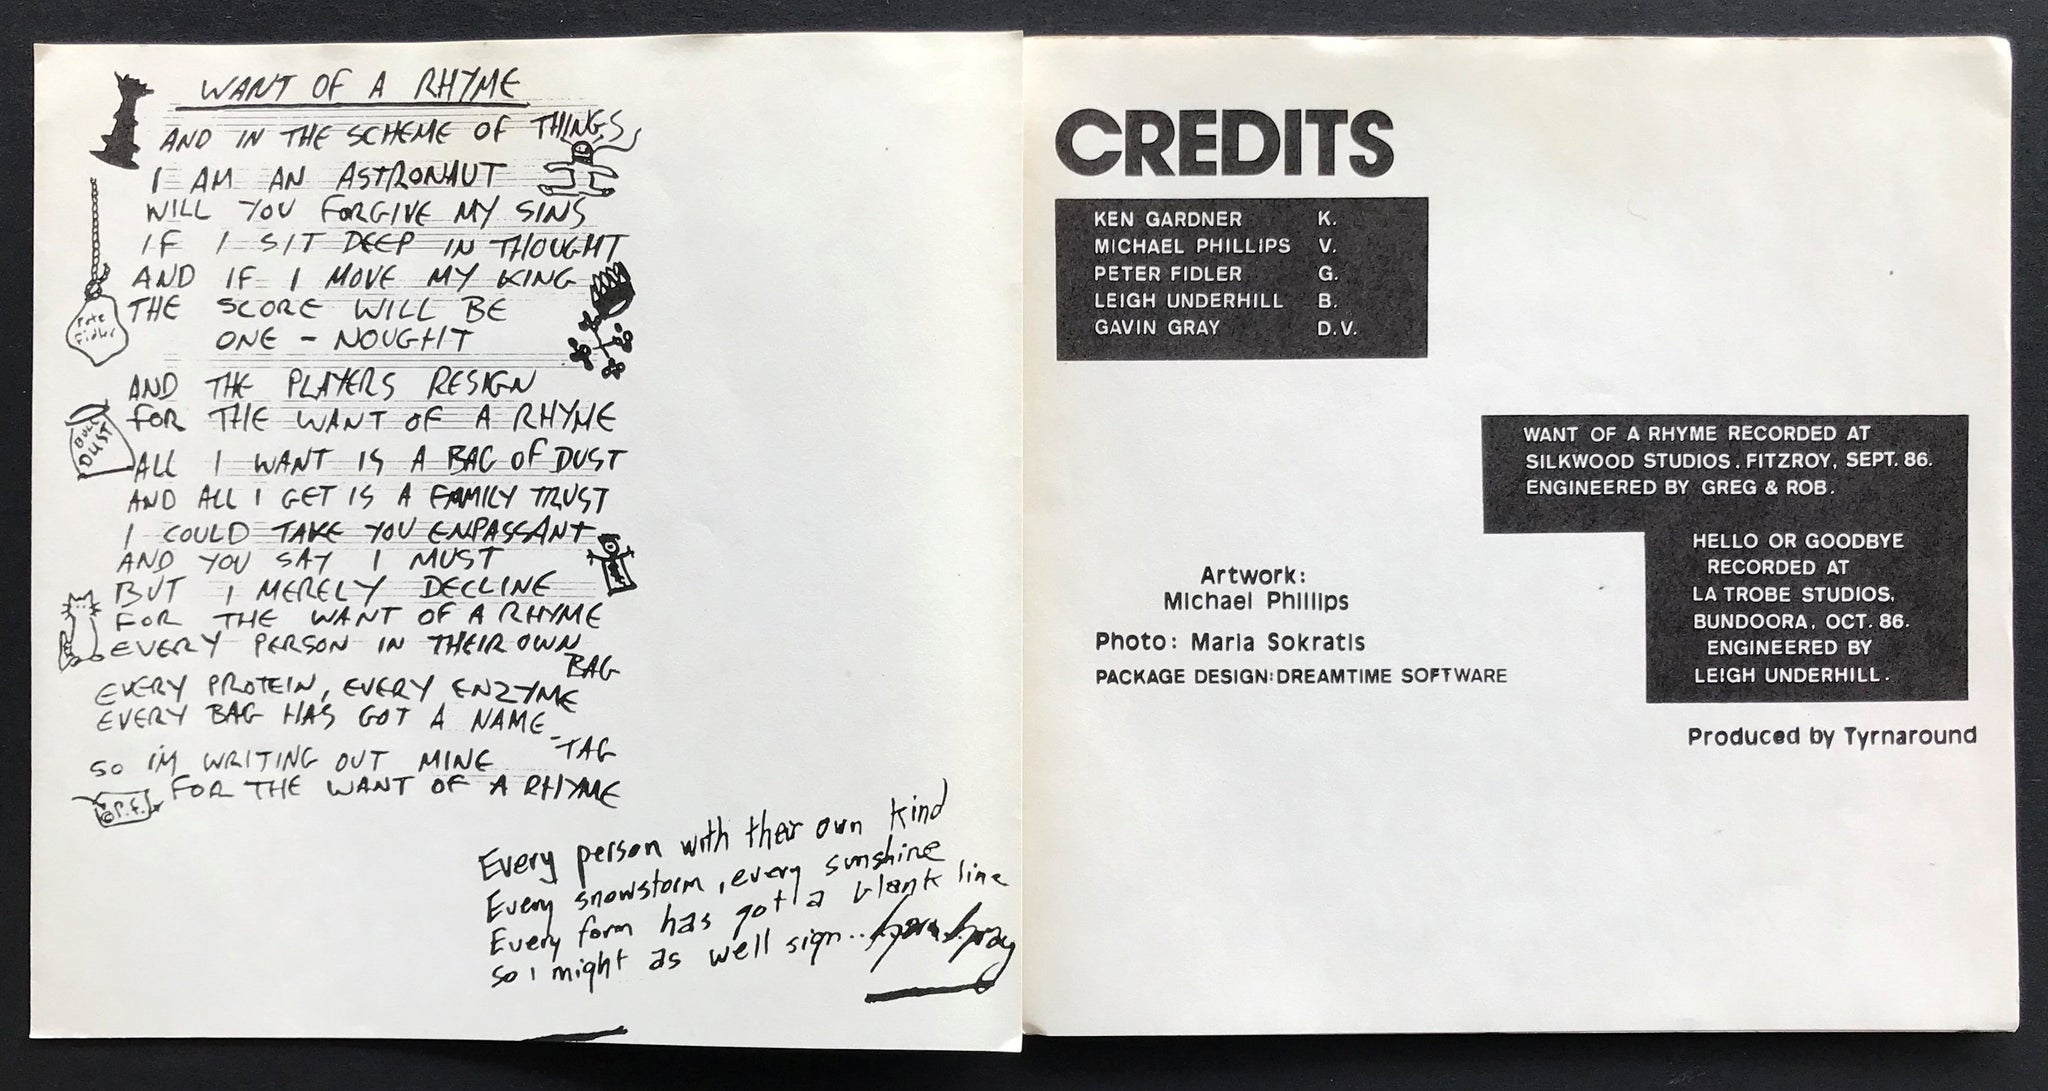 WANT OF A RHYME
AND IN THE SCHEME OF THINGS,
I AM AN ASTRONAUT
WILL YOU FORGIVE MY SINS
IF I SIT DEEP IN THOUGHT
AND IF I MOVE MY KING
THE SCORE WILL BE
ONE - NOUGHT
Pete
Fidler
AND THE PLAYERS RESIGN
FOR THE WANT OF A RHYME
BULL
DUST
ALL I WANT IS A BAG OF DUST
AND ALL I GET IS A FAMILY TRUST
I COULD TAKE YOU ENPASSANT
AND YOU SAY I MUST
BUT I MERELY DECLINE
FOR THE WANT OF A RHYME
EVERY PERSON IN THEIR OWN
BAG
EVERY PROTEIN, EVERY ENZYME
EVERY BAG HAS GOT A NAME
-TAG
SO I'M WRITING OUT MINE
FOR THE WANT OF A RHYME
©P.F.
Every person with their own kind
Every snowstorm, every sunshine
Every form has got a blank line
so i might as well sign..
CREDITS
KEN GARDNER K.
MICHAEL PHILLIPS V.
PETER FIDLER G.
LEIGH UNDERHILL B.
GAVIN GRAY D.V.
WANT OF A RHYME RECORDED AT
SILKWOOD STUDIOS, FITZROY, SEPT. 86.
ENGINEERED BY GREG & ROB.
HELLO OR GOODBYE
RECORDED AT
LA TROBE STUDIOS,
BUNDOORA, OCT. 86.
ENGINEERED BY
LEIGH UNDERHILL.
Artwork:
Michael Phillips
Photo: Maria Sokratis
PACKAGE DESIGN: DREAMTIME SOFTWARE
Produced by Tyrnaround